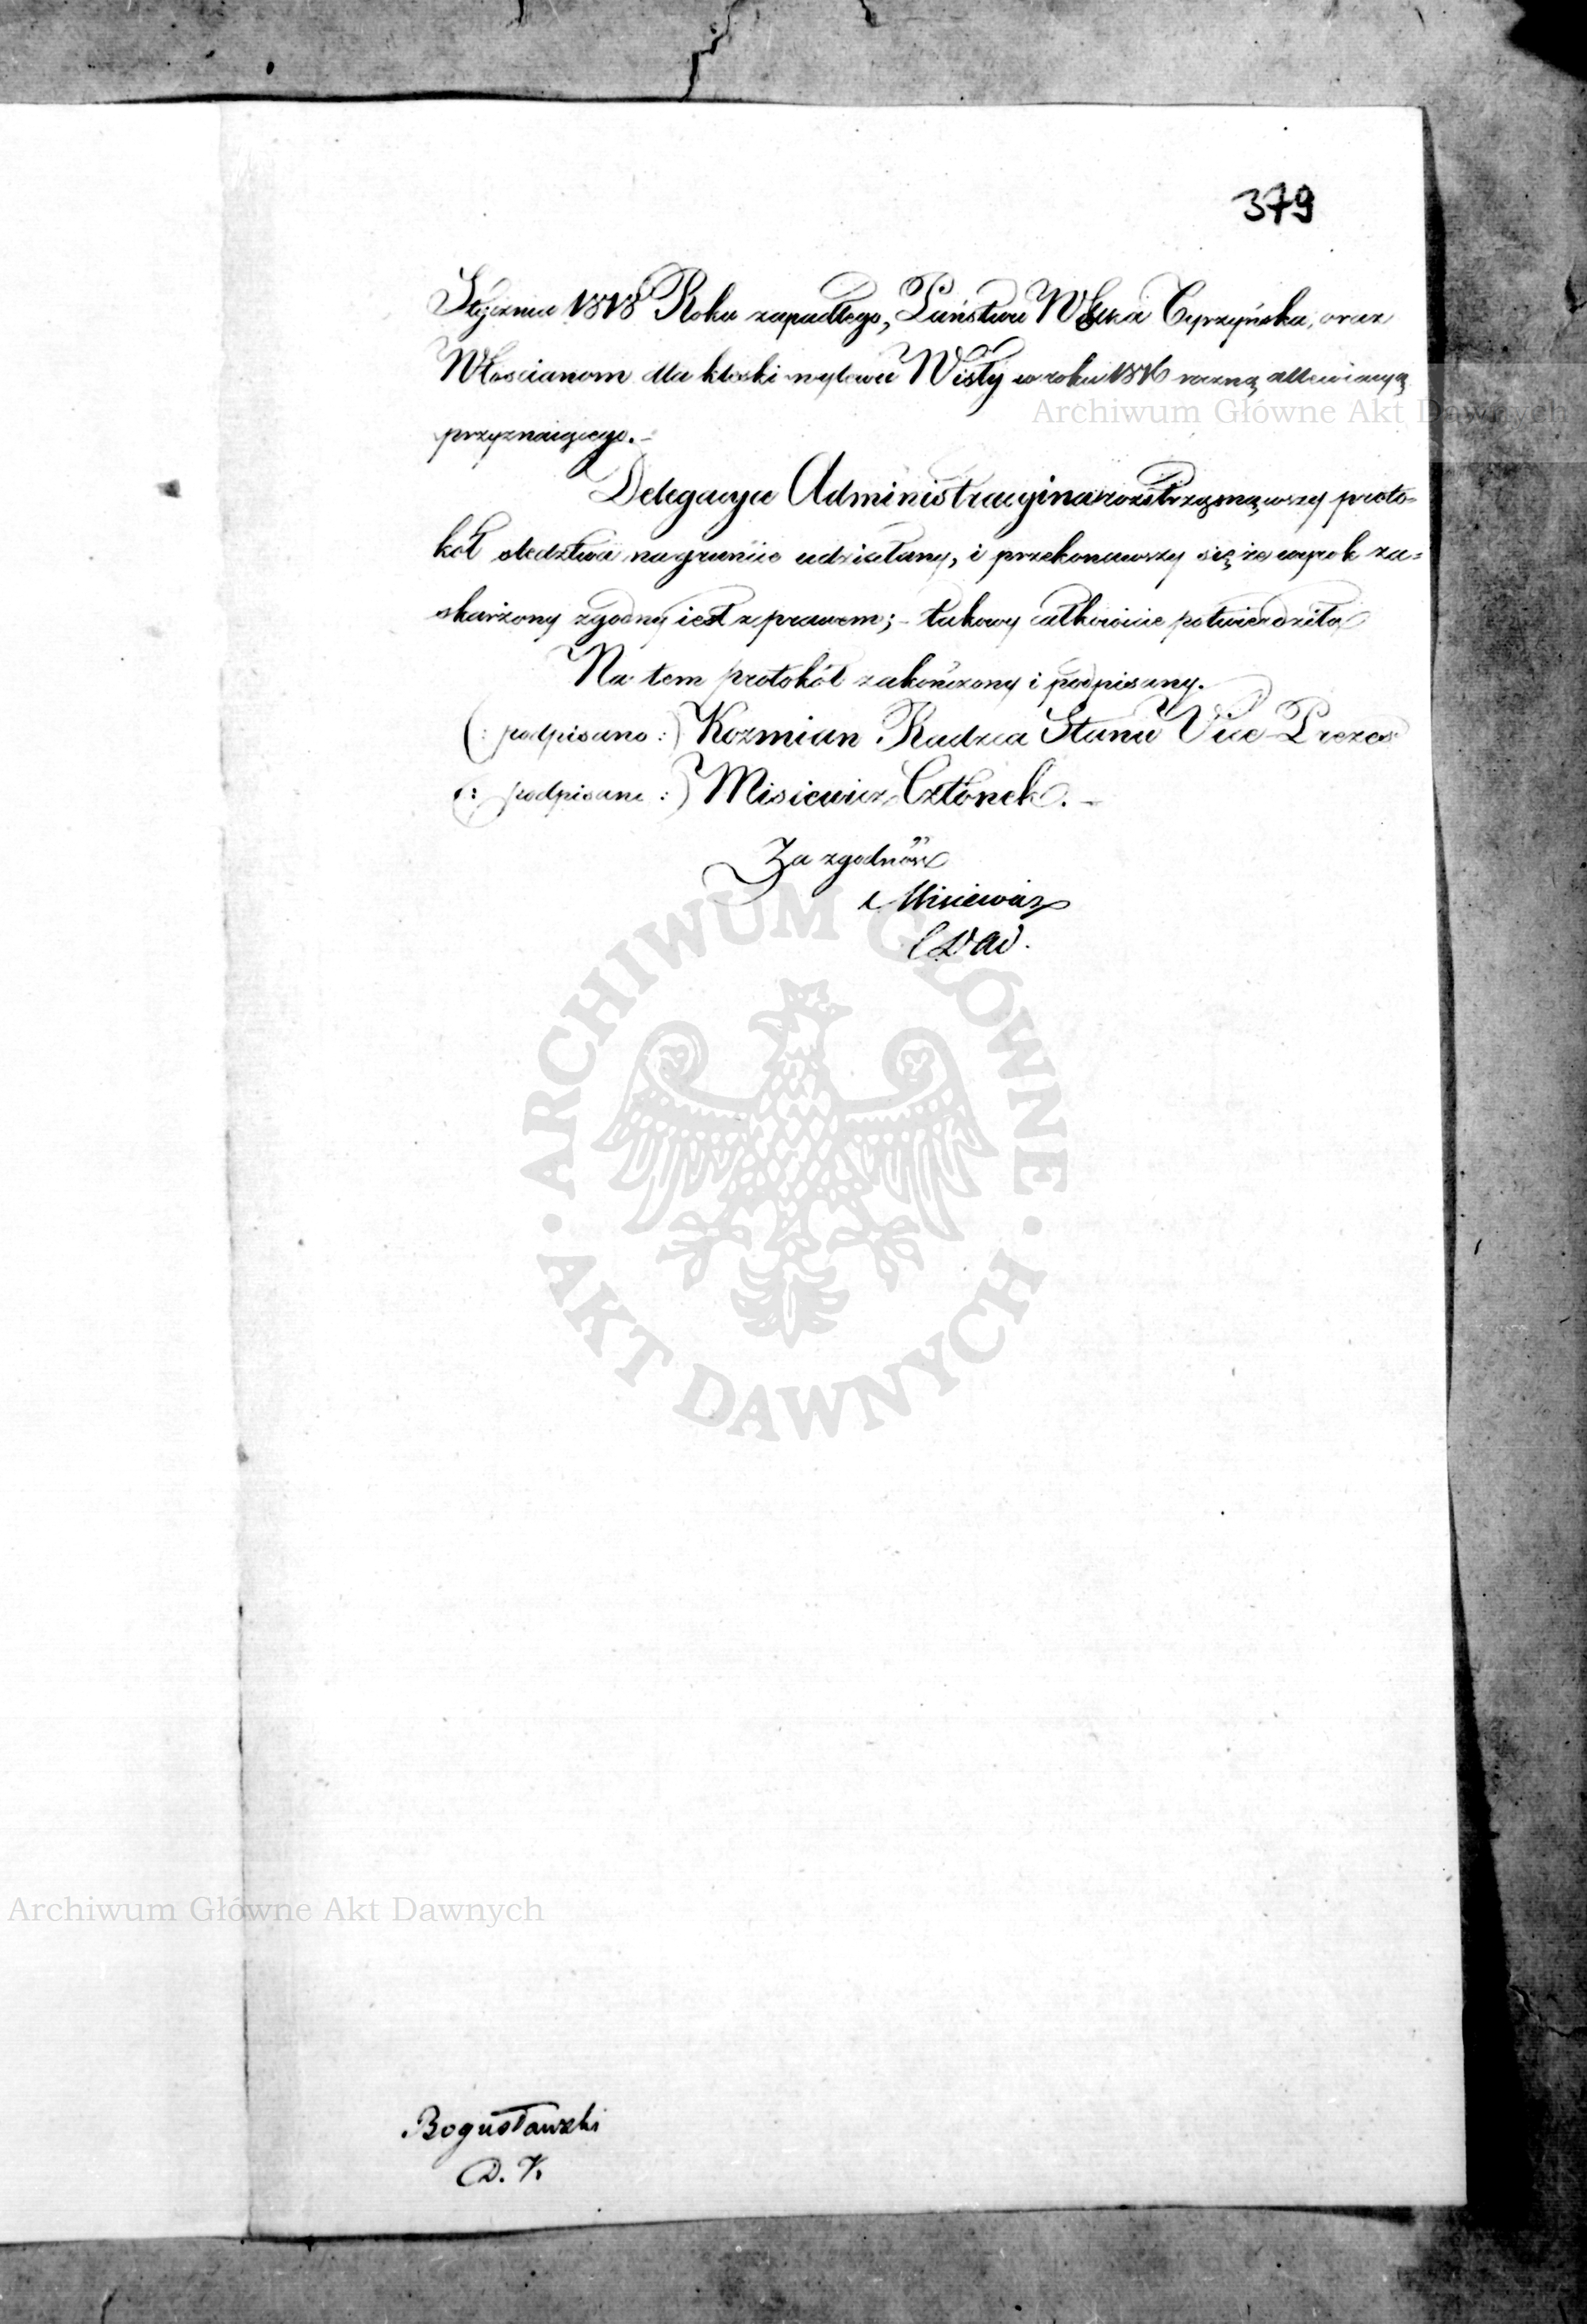 379
Stycznia 1818 Roku zapadłego, Państwu Wólka Cyrzyńska, oraz
Włoscianom dla klęski wylewu Wisły w roku 1816 roczną allewiacyą
przyznaiącego.-
Delegacya Administracyina rozstrząsnąwszy proto=
kół sledztwa na gruncie udziałany, i przekonawszy się że wyrok za=
skarżony zgodny iest z prawem;- takowy całkowicie potwierdziła
Na tem protokół zakończony i podpisany.
(: podpisano :) Kozmian Radzca Stanu Vice-Prezes
(: podpisano :) Misiewicz Członek.-
Za zgodność
Misiewicz
Bogusławski
D. K.
Archiwum Główne Akt Dawnych
ARCHIWUM GŁÓWNE
· AKT DAWNYCH ·
Archiwum Główne Akt Dawnych